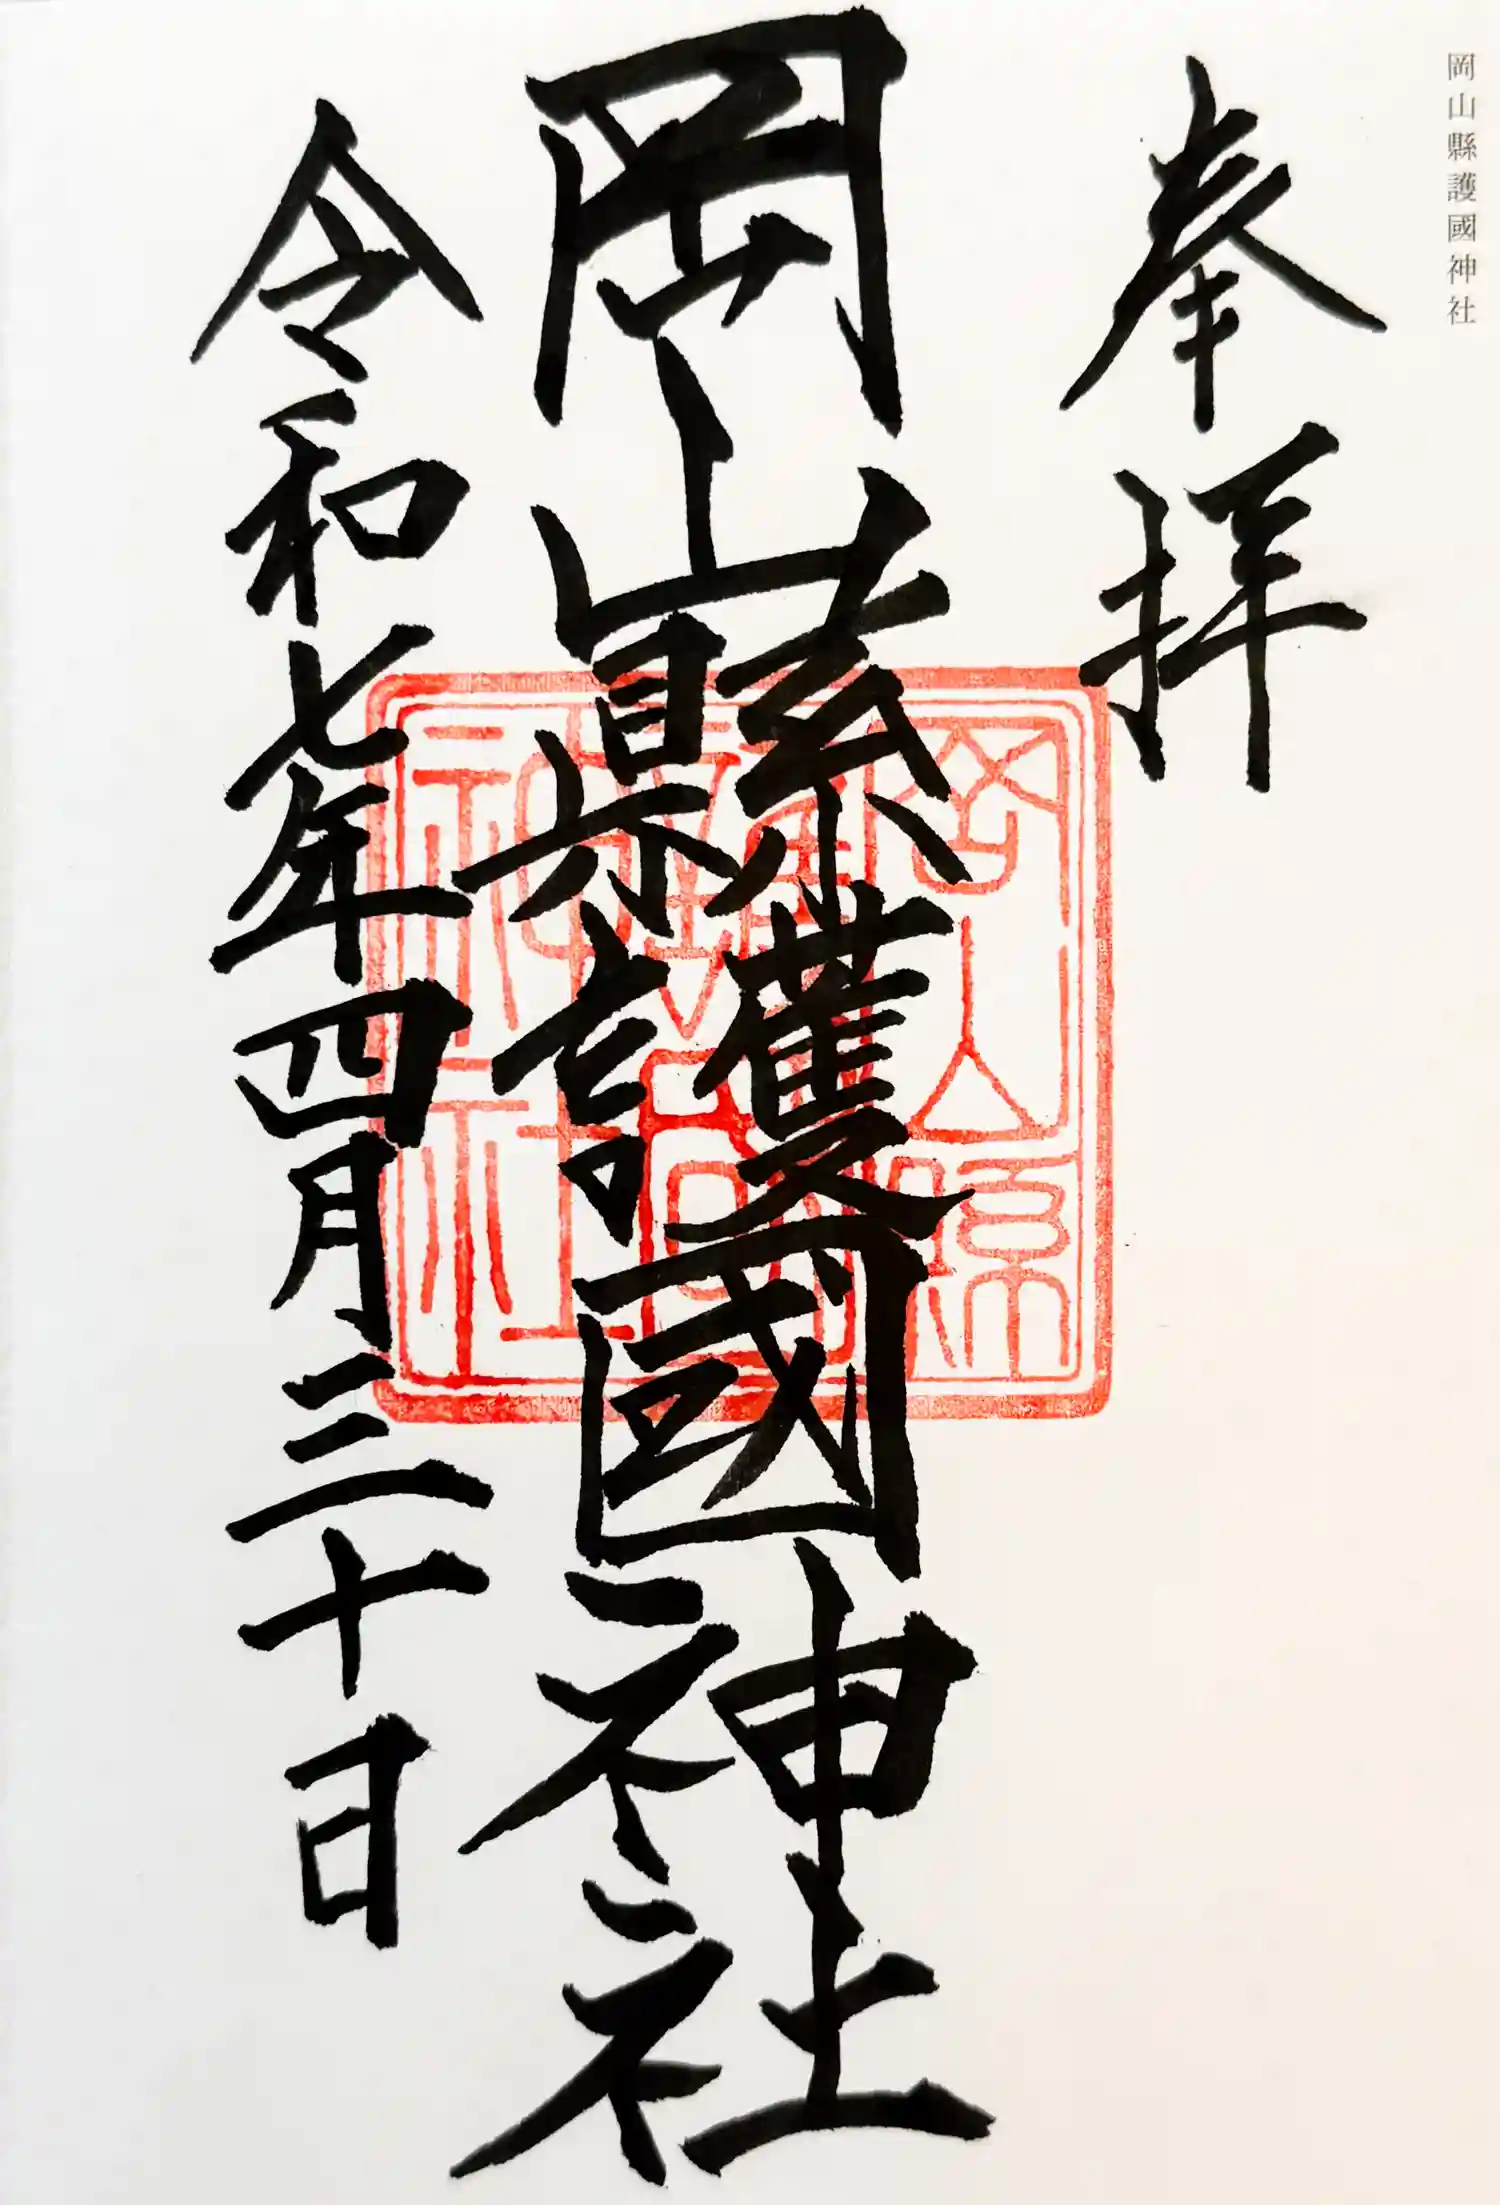 岡山縣護國神社
奉拝
岡山縣護國神社
令和七年四月三十日
岡山縣護國神社